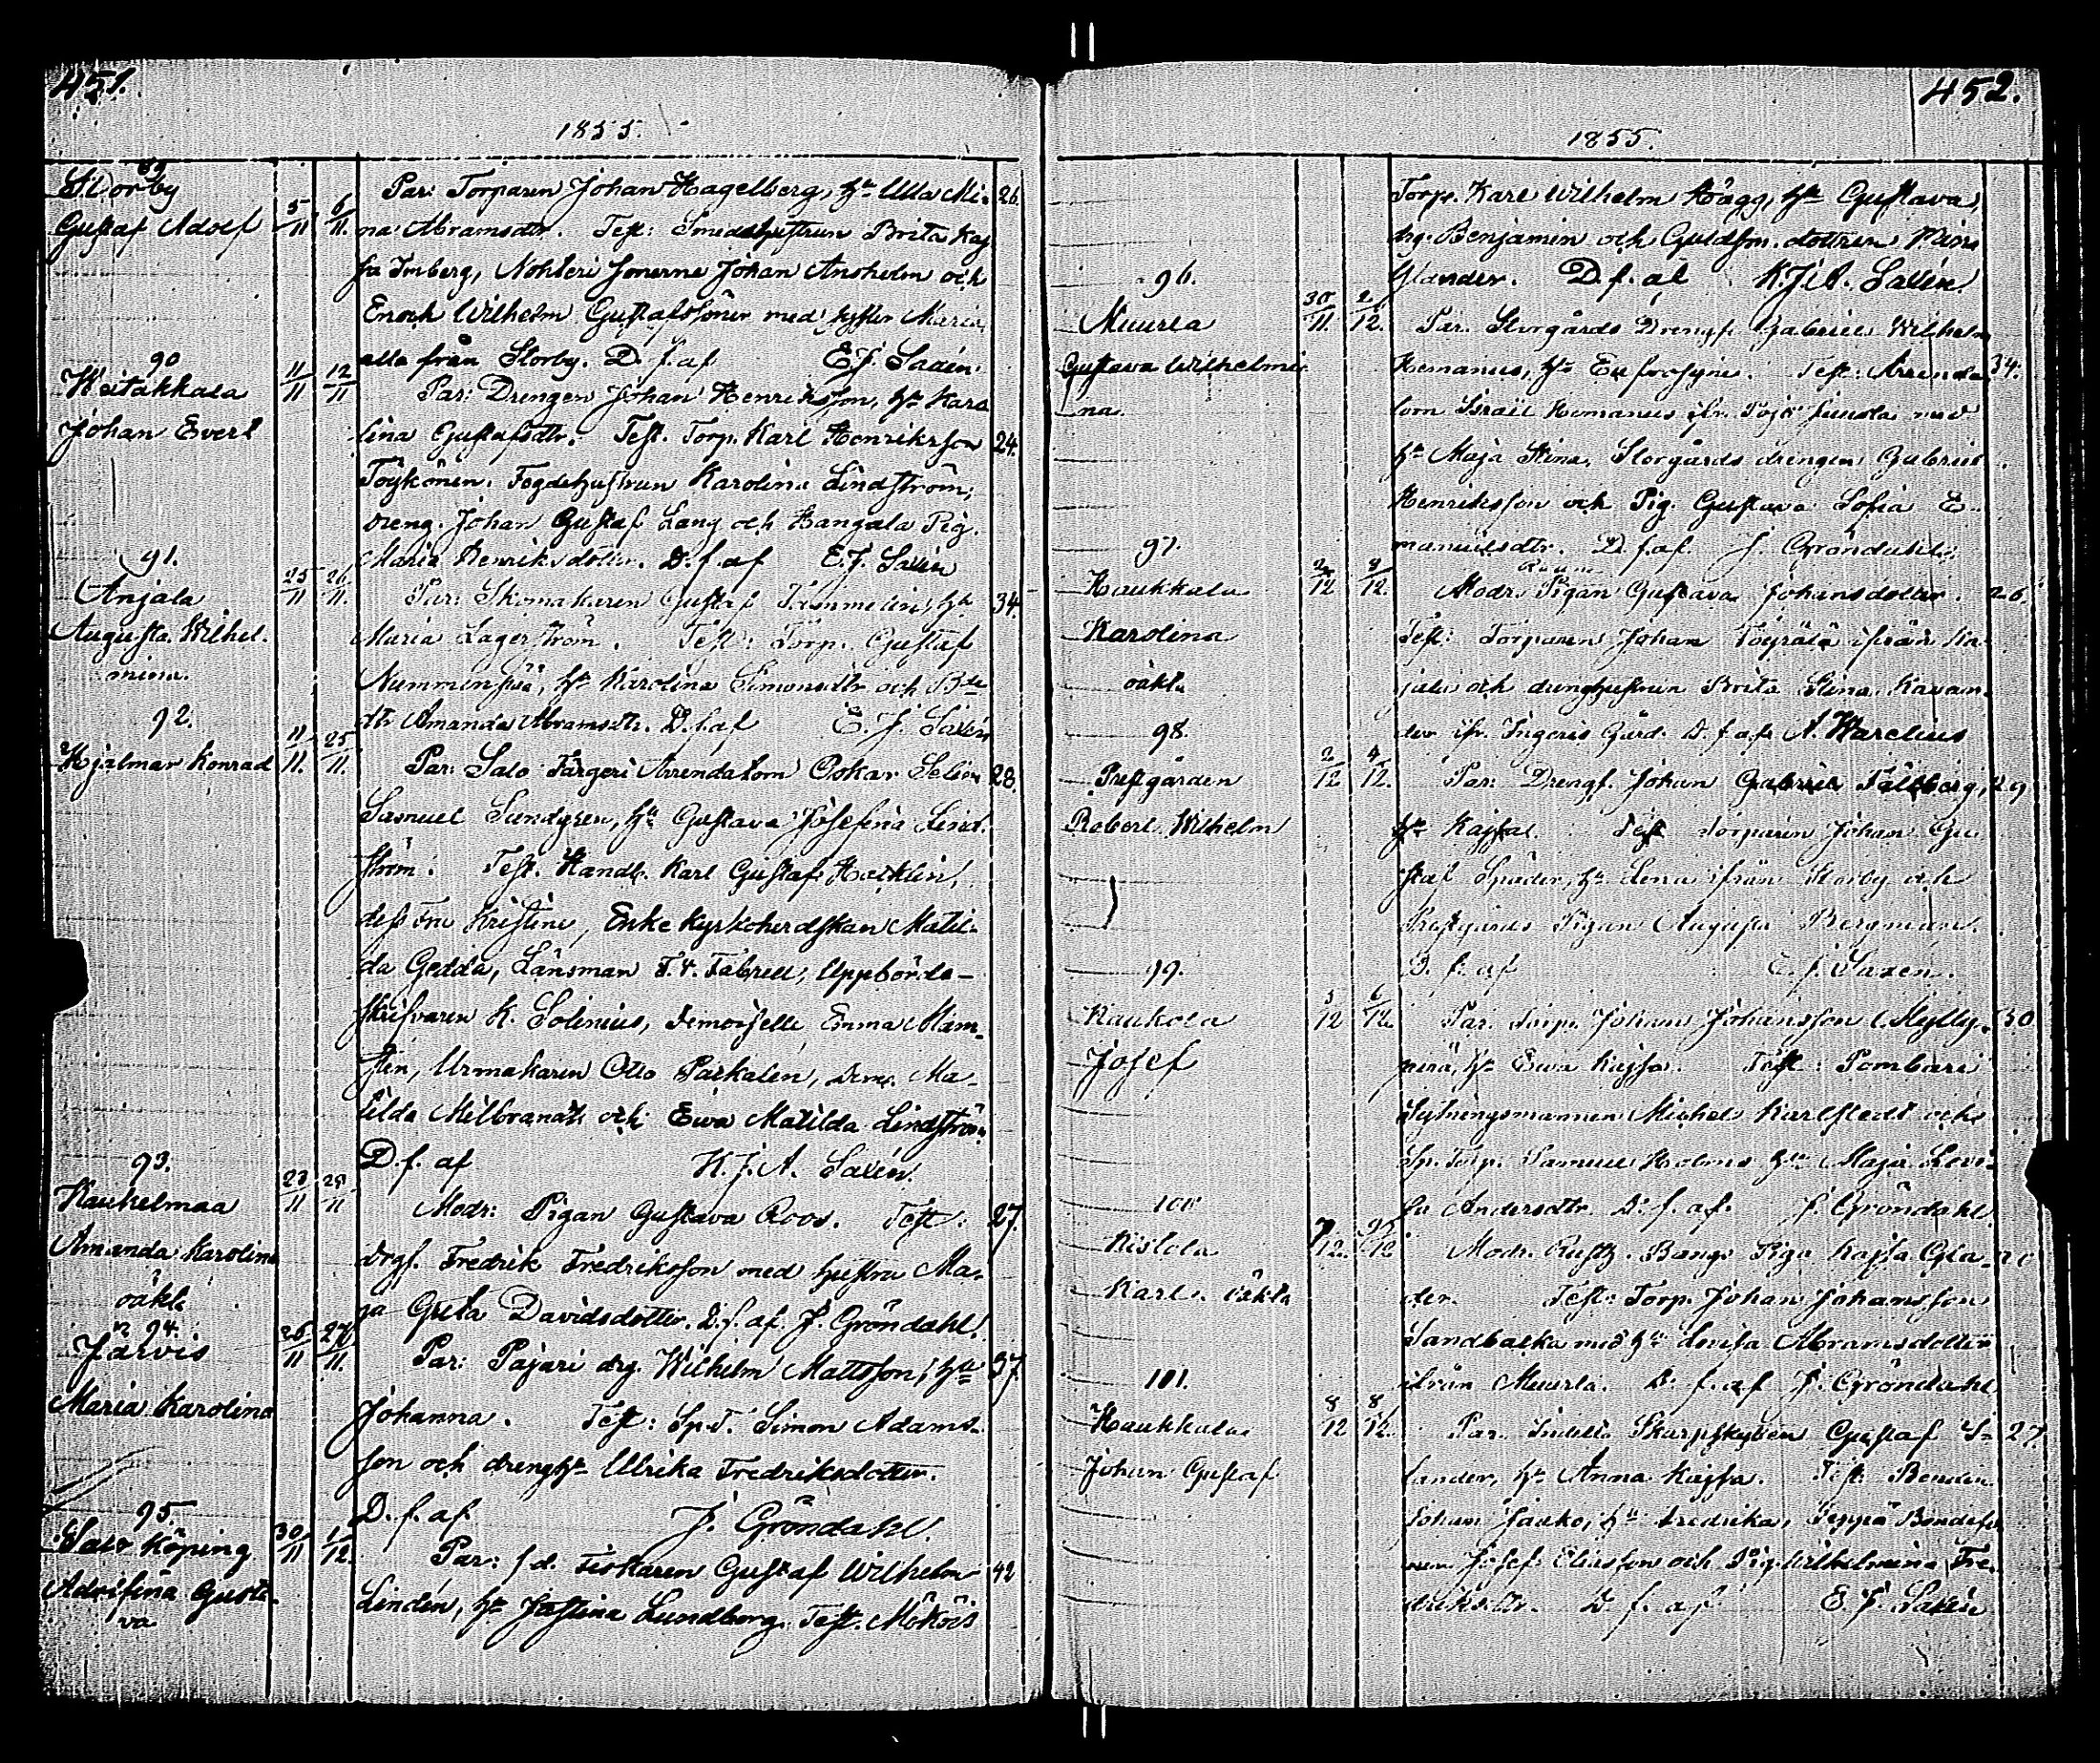 451.
1855.
89
Storby
Gustaf Adolf 5/11 6/11
Par: Torparen Johan Hagelberg, hu Ulla Mi- 26.
na Abramsdtr. Test: Smedshustrun Brita Kaj
sa Imberg, Nohteri sonerne Johan Ansholm och
Enoch Wilhelm Gustafssöner med syster Maria
alla från Storby. D. f. af E. J. Saxén.
90
Johan Evert
11/11 12/11
Par: Drengen Johan Henriksson, hu Karo
lina Gustafsdtr. Test. Torp. Karl Henriksson 24.
Töykönen, Fogdehustrun Karolina Lindström,
dreng. Johan Gustaf Lang och Hangala Pig.
Maria Henriksdotter. D. f. af E. J. Saxén
91.
Anjala
Augusta Wilhel-
mina.
25/11 26/11.
Par: Skomakaren Gustaf Tammelin, hu 34
Maria Lagerström. Test: Torp. Gustaf
Nummenpää, hu Karolina Simonsdtr och Bde
dtr Amanda Abramsdtr. D. f. af E. J. Saxén
92.
Hjalmar Konrad 11/11. 25/11.
Par: Salo Färgeri Arrendatorn Oskar 28.
Samuel Sundgren, hu Gustava Josefina Lind-
ström. Test. Handl. Karl Gustaf
dess Fru Kristine, Enke Kyrkoherdskan Matil-
da Gedda, Länsman F. V. Fabrell, Uppbörds-
skrifvaren K. Solinius, Demoiselle Emma Mam-
sten, Urmakaren Otto Paskalen, Dems. Ma-
tilda Milbranat och Ewa Matilda Lindström.
D. f. af K. J. A. Saxén.
93.
Kaukelmaa
Amanda Karolina
oäkta
23/11 28/11
Modr: Pigan Gustava Roos. Test: 27
drgs. Fredrik Fredriksson med hustru Ma-
ja Greta Davidsdotter. D. f. af J. Gröndahl.
94.
Järvis
Maria Karolina
26/11 27/11.
Par: Pajari drg. Wilhelm Mattsson, hu 37
Johanna. Test: Sp.T. Simon Adams-
son och drenghu Ulrika Fredriksdotter.
D. f. af J. Gröndahl.
95.
Salo Köping
Adolfina Gusta-
va
30/11 1/12.
Par: f.d. Fiskaren Gustaf Wilhelm 42
Lindén, hu Justina Lundberg. Test. Mököis
452.
1855.
Torp. Karl Wilhelm Hägg, hu Gustava,
drg. Benjamin och Guldsm. dottren Mina
Glander. D. f. af K. J. A. Saxén.
96.
Muurla
Gustava Wilhelmi
na.
30/11. 2/12.
Par. Storgårds Drengs. Gabriel Wilhelm
Homanius, hu Eufrosyne. Test: Arrenda 34.
torn Israël Homanius ifr. med
hu Maja Stina, Storgårds drengen Gabriel
Henriksson och Pig. Gustava Sofia E-
manuelsdtr. D. f. af J. Gröndahl.
97.
Haukkala
Karolina
oäkta
2/12 3/12.
Modr. Pigan Gustava Johansdotter. 26.
Test: Torparen Johan ifrån Ka-
jala och drenghustrun Brita Stina Kavan-
der ifr. Ingeris Gård. D. f. af A. Warelius
98.
Prestgården
Robert Wilhelm
2/12 4/12.
Par: Drengs. Johan Gabriel Fältberg, 29
hu Kajsa. Test Torparen Johan Gu
staf Späder, hu Lena ifrån Storby och
Prestgårds Pigan Augusta Bergman.
D. f. af E. J. Saxén.
99.
Kaukola
Josef
3/12 6/12.
Par. Torp. Johan Johansson Mylly- 30
perä, hu Ewa Kajsa. Test: Pombari
Sytningsmannen Michel Karlstedt och
Sp. Torp. Samuel Holms hu Maja Lovi-
sa Andersdtr. D. f. af J. Gröndahl.
100
Kistola
Karl. oäkta
7/12. 25/12
Modr. Rusth. Bangs Piga Kajsa Gla-
der. Test: Torp. Johan Johansson
Sandbacka med hu Lovisa Abramsdotter
ifrån Muurla. D. f. af J. Gröndahl
101.
Haukkala
Johan Gustaf
8/12 8/12.
Par. Indelta Skarpskytten Gustaf 27.
lander, hu Anna Kajsa. Test: Bonden
Johan Jauko, hu Fredrika, Seppä Bondes
Josef Eliasson och Pig. Wilhelmina Fre-
driksdtr. D. f. af E. J. Saxén